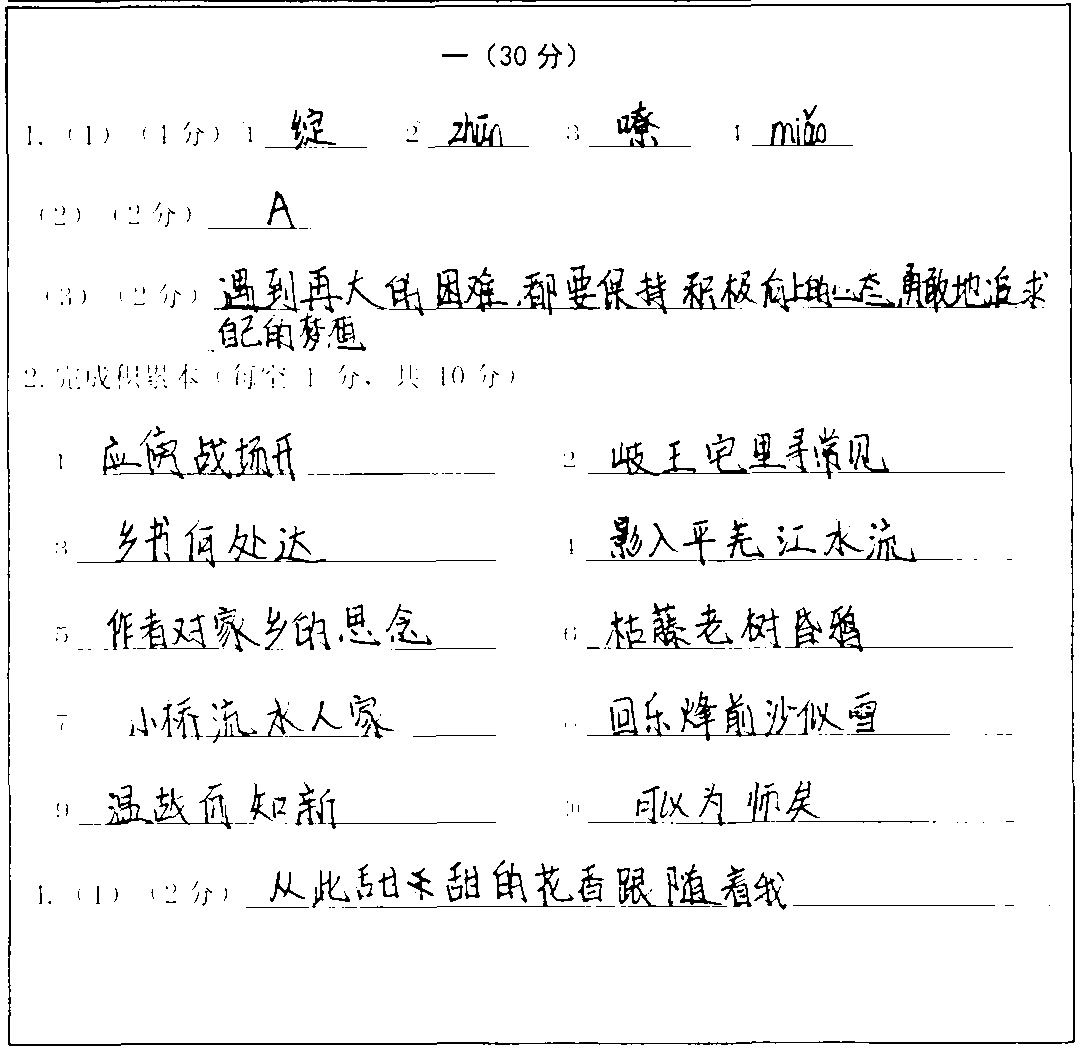 一（30 分）
1.（1）（4 分）1 绽 2 zhūn 3 嘹 4 miǎo
（2）（2 分） A
（3）（2 分） 遇到再大的困难，都要保持积极向上的心态，勇敢地追求
自己的梦想
2. 完成积累本（每空 1 分，共 10 分）
1 应傍战场开 2 岐王宅里寻常见
3 乡书何处达 4 影入平羌江水流
5 作者对家乡的思念 6 枯藤老树昏鸦
7 小桥流水人家 回乐烽前沙似雪
9 温故而知新 10 可以为师矣
4.（1）（2 分） 从此甜禾甜的花香跟随着我